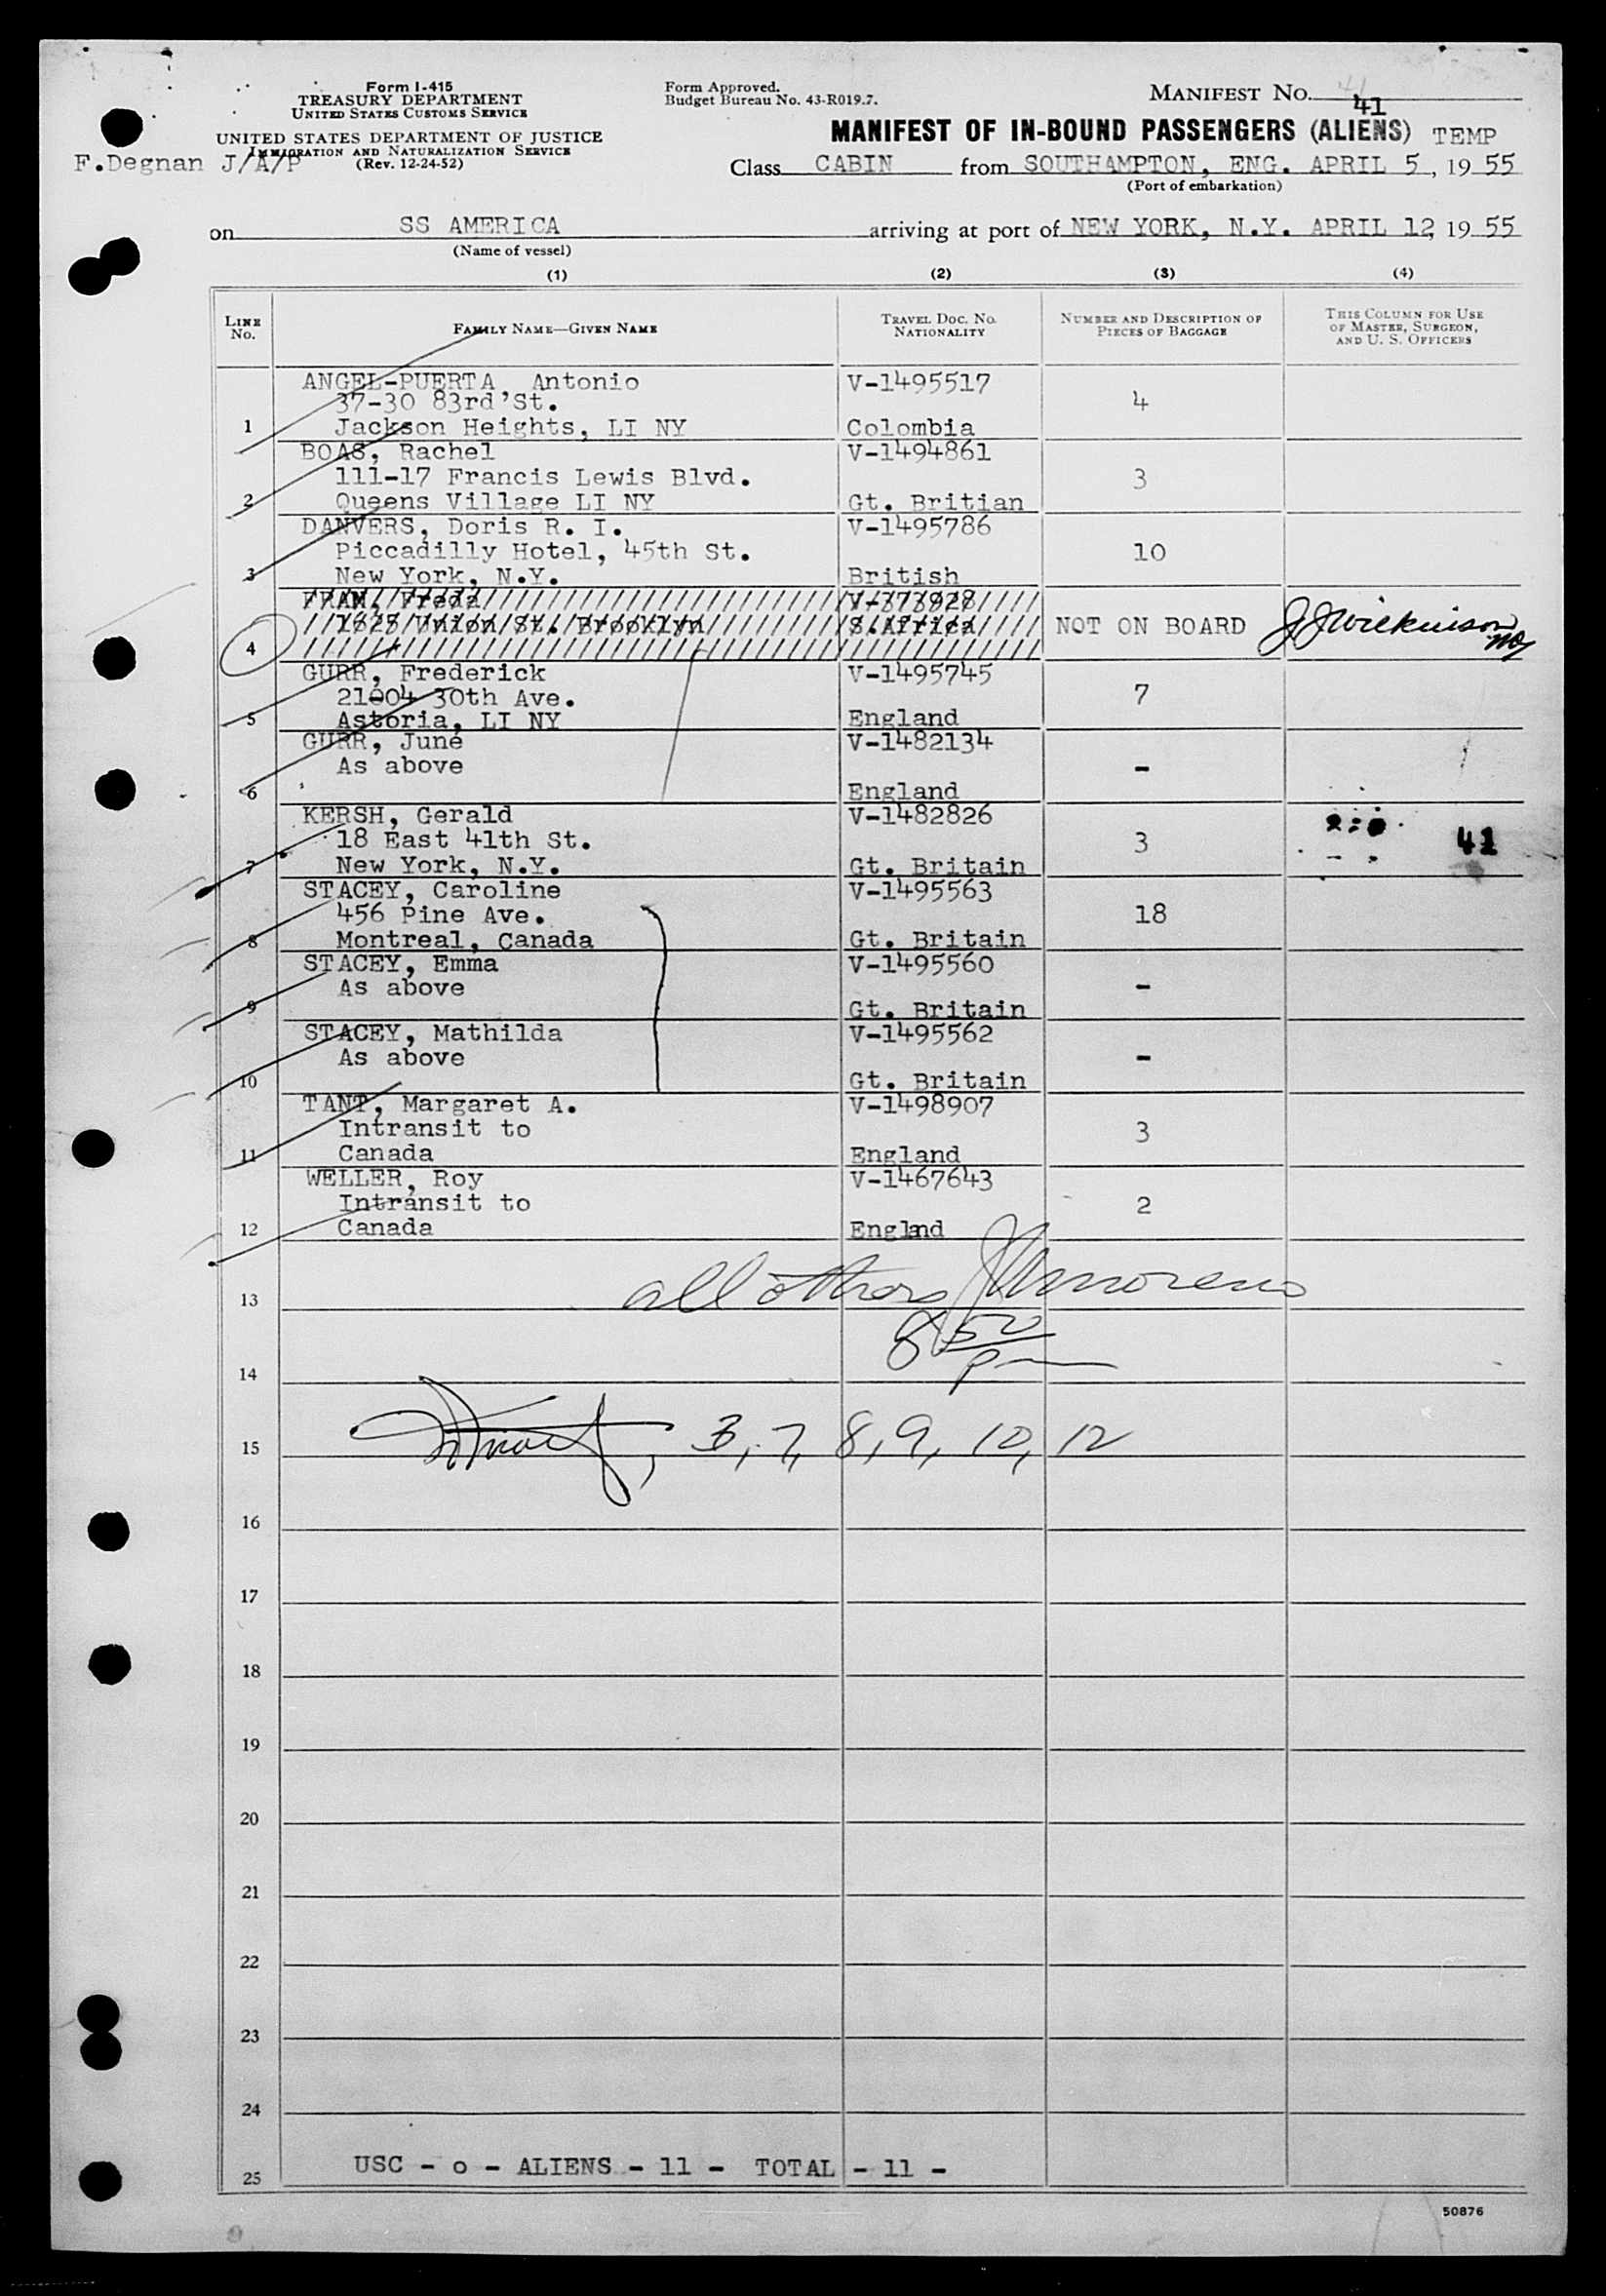 Form I-415
TREASURY DEPARTMENT
UNITED STATES CUSTOMS SERVICE
UNITED STATES DEPARTMENT OF JUSTICE
IMMIGRATION AND NATURALIZATION SERVICE
(Rev. 12-24-52)
F.Degnan J/A/P
Form Approved.
Budget Bureau No. 43-R019.7.
MANIFEST No. 41
41
MANIFEST OF IN-BOUND PASSENGERS (ALIENS) TEMP
Class CABIN from SOUTHAMPTON, ENG. APRIL 5, 19 55
(Port of embarkation)
on SS AMERICA arriving at port of NEW YORK, N.Y. APRIL 12, 19 55
(Name of vessel)
(1) (2) (3) (4)
LINE No. FAMILY NAME—GIVEN NAME TRAVEL DOC. NO. NATIONALITY NUMBER AND DESCRIPTION OF PIECES OF BAGGAGE THIS COLUMN FOR USE OF MASTER, SURGEON, AND U. S. OFFICERS
ANGEL-PUERTA, Antonio V-1495517
37-30 83rd'St. 4
1 Jackson Heights, LI NY Colombia
BOAS, Rachel V-1494861
111-17 Francis Lewis Blvd. 3
2 Queens Village LI NY Gt. Britian
DANVERS, Doris R. I. V-1495786
Piccadilly Hotel, 45th St. 10
3 New York, N.Y. British
FRAM, Freda V-373928
1625 Union St. Brooklyn S.Africa NOT ON BOARD
4
GURR, Frederick V-1495745
21004 30th Ave. 7
5 Astoria, LI NY England
GURR, June V-1482134
As above -
6 England
KERSH, Gerald V-1482826
18 East 41th St. 3 41
7 New York, N.Y. Gt. Britain
STACEY, Caroline V-1495563
456 Pine Ave. 18
8 Montreal, Canada Gt. Britain
STACEY, Emma V-1495560
As above -
9 Gt. Britain
STACEY, Mathilda V-1495562
As above -
10 Gt. Britain
TANT, Margaret A. V-1498907
Intransit to 3
11 Canada England
WELLER, Roy V-1467643
Intransit to 2
12 Canada England
13 all others
8 50
pm
14
15 3, 7, 8, 9, 10, 12
16
17
18
19
20
21
22
23
24
25 USC - o - ALIENS - 11 - TOTAL - 11 -
50876